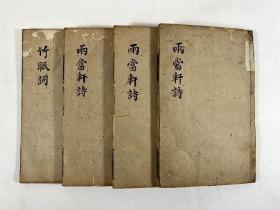 雨當軒詩
雨當軒詩
雨當軒詩
竹眠詞